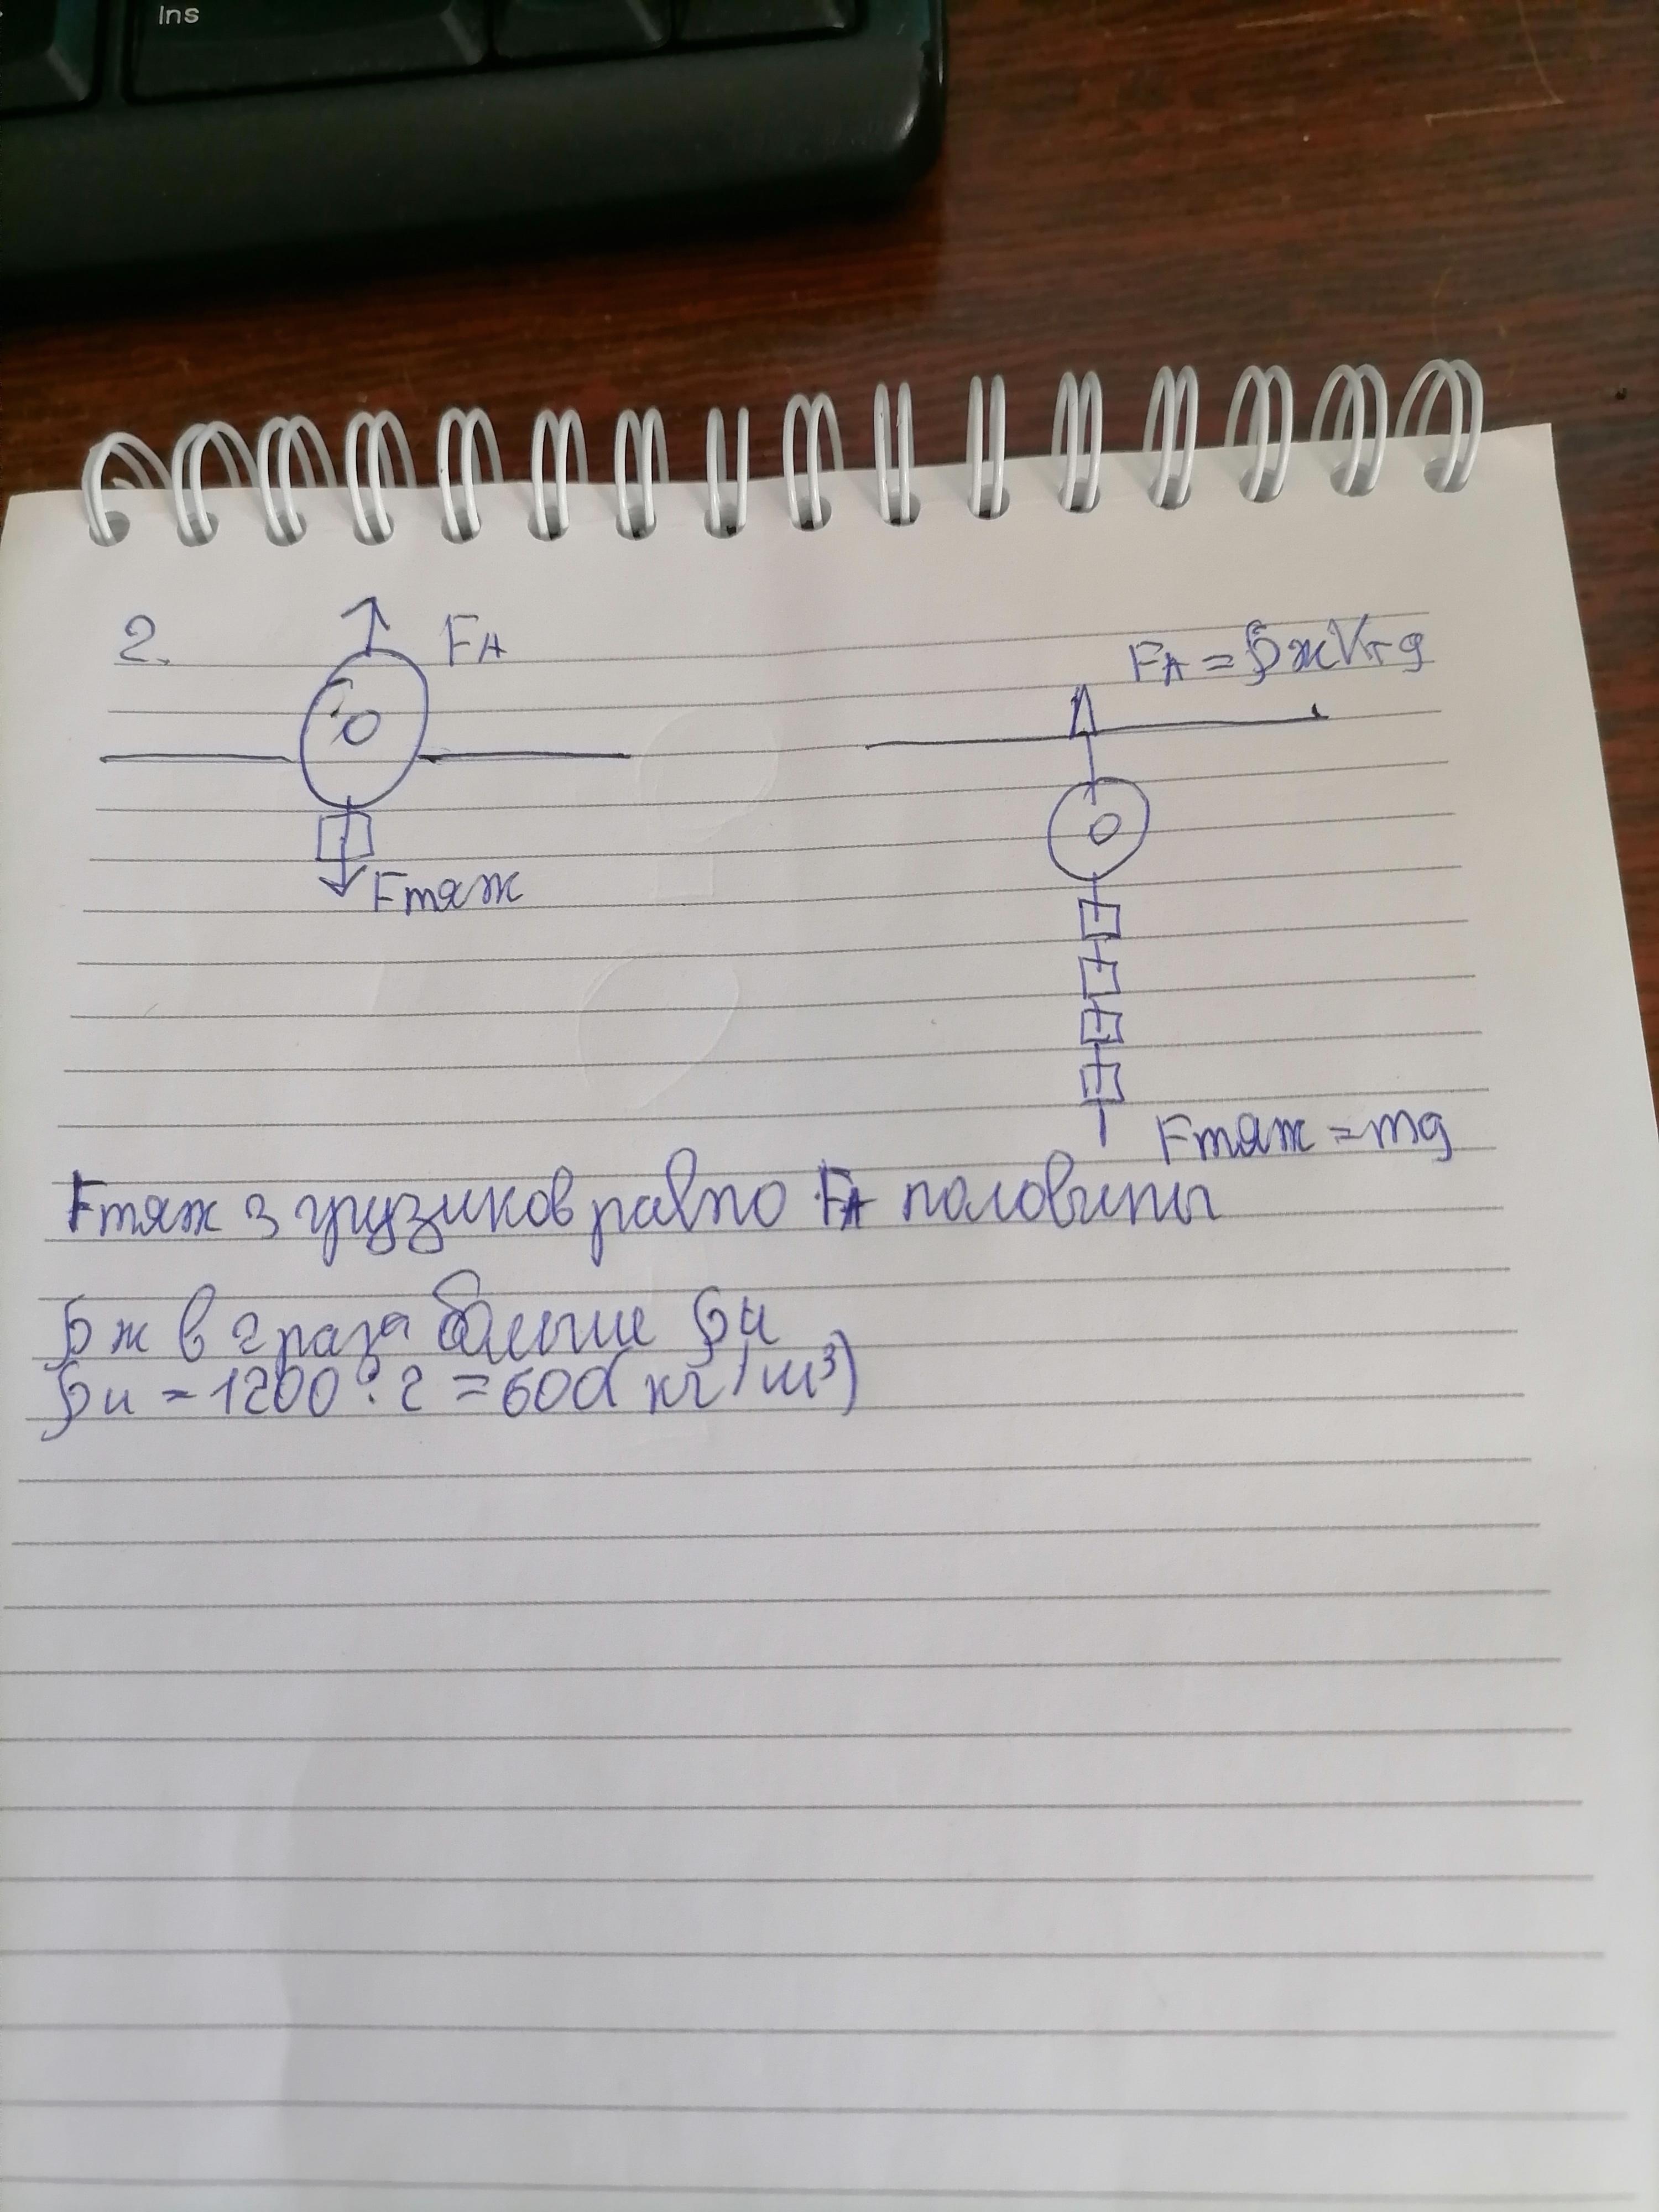 Ins
2.
FA
FA = ρжVтg
Fтяж
Fтяж = mg
Fтяж 3 грузиков равно FA половины
ρж в 2 раза больше ρи
ρи = 1200 : 2 = 600 (кг/м³)